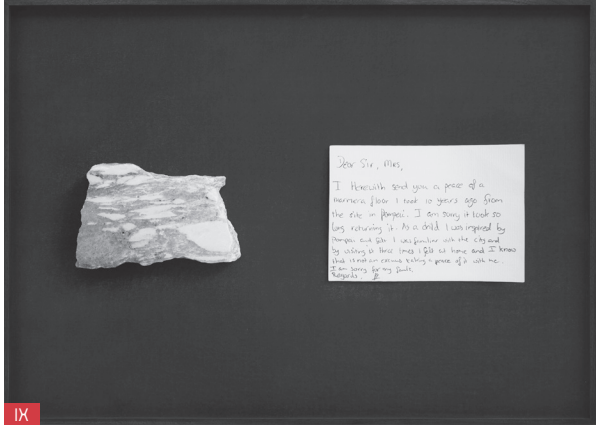 Dear Sir, Mrs,
I Herewith send you a peace of a
marmera floor I took 10 years ago from
the site in Pompeii. I am sorry it took so
long returning it. As a child I was inspired by
Pompeii and felt I was familiar with the city and
by visiting it three times I felt at home and I know
that is not an excuse taking a peace of it with me.
I am sorry for my fault.
Regards,
IX